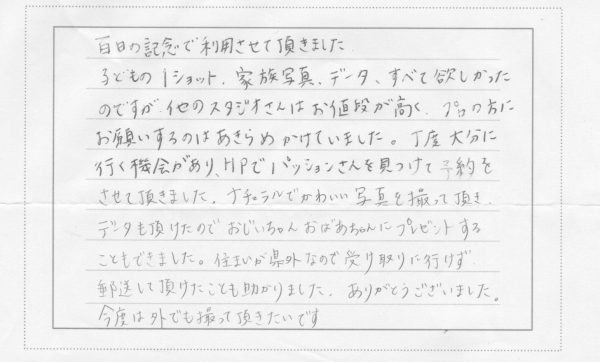 百日の記念で利用させて頂きました
子どもの1ショット、家族写真、データ、すべて欲しかった
のですが、他のスタジオさんはお値段が高く、プロの方に
お願いするのはあきらめかけていました。丁度大分に
行く機会があり、HPでパッションさんを見つけて予約を
させて頂きました。ナチュラルでかわいい写真を撮って頂き、
データも頂けたのでおじいちゃんおばあちゃんにプレゼントする
こともできました。住まいが県外なので受け取りに行けず、
郵送して頂けたことも助かりました。ありがとうございました。
今度は外でも撮って頂きたいです